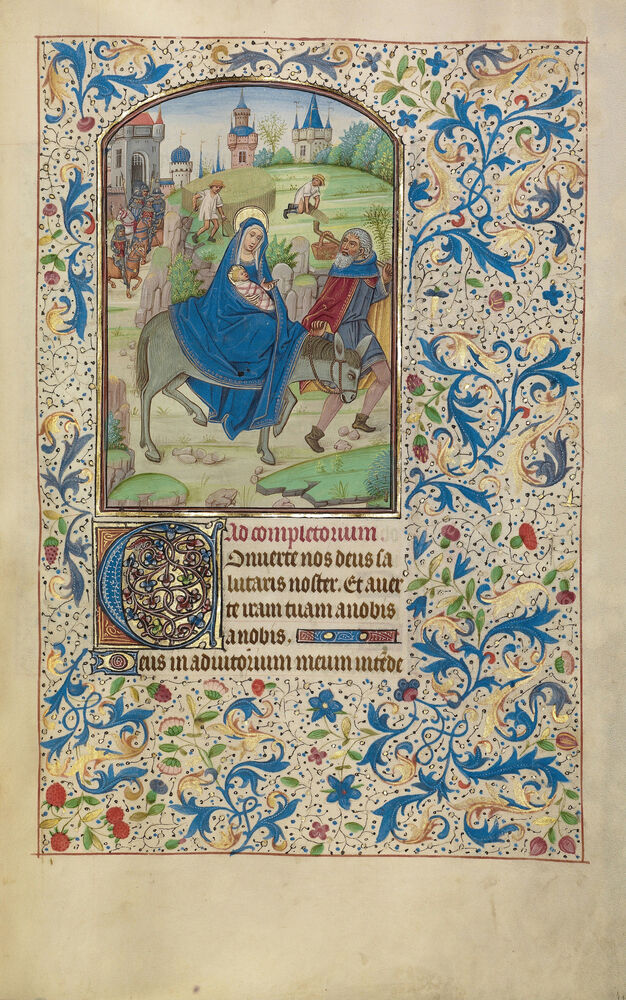 Ad completorium
Onuerte nos deus sa
lutaris noster. Et auer
te iram tuam a nobis
a nobis.
Deus in adiutorium meum intēde